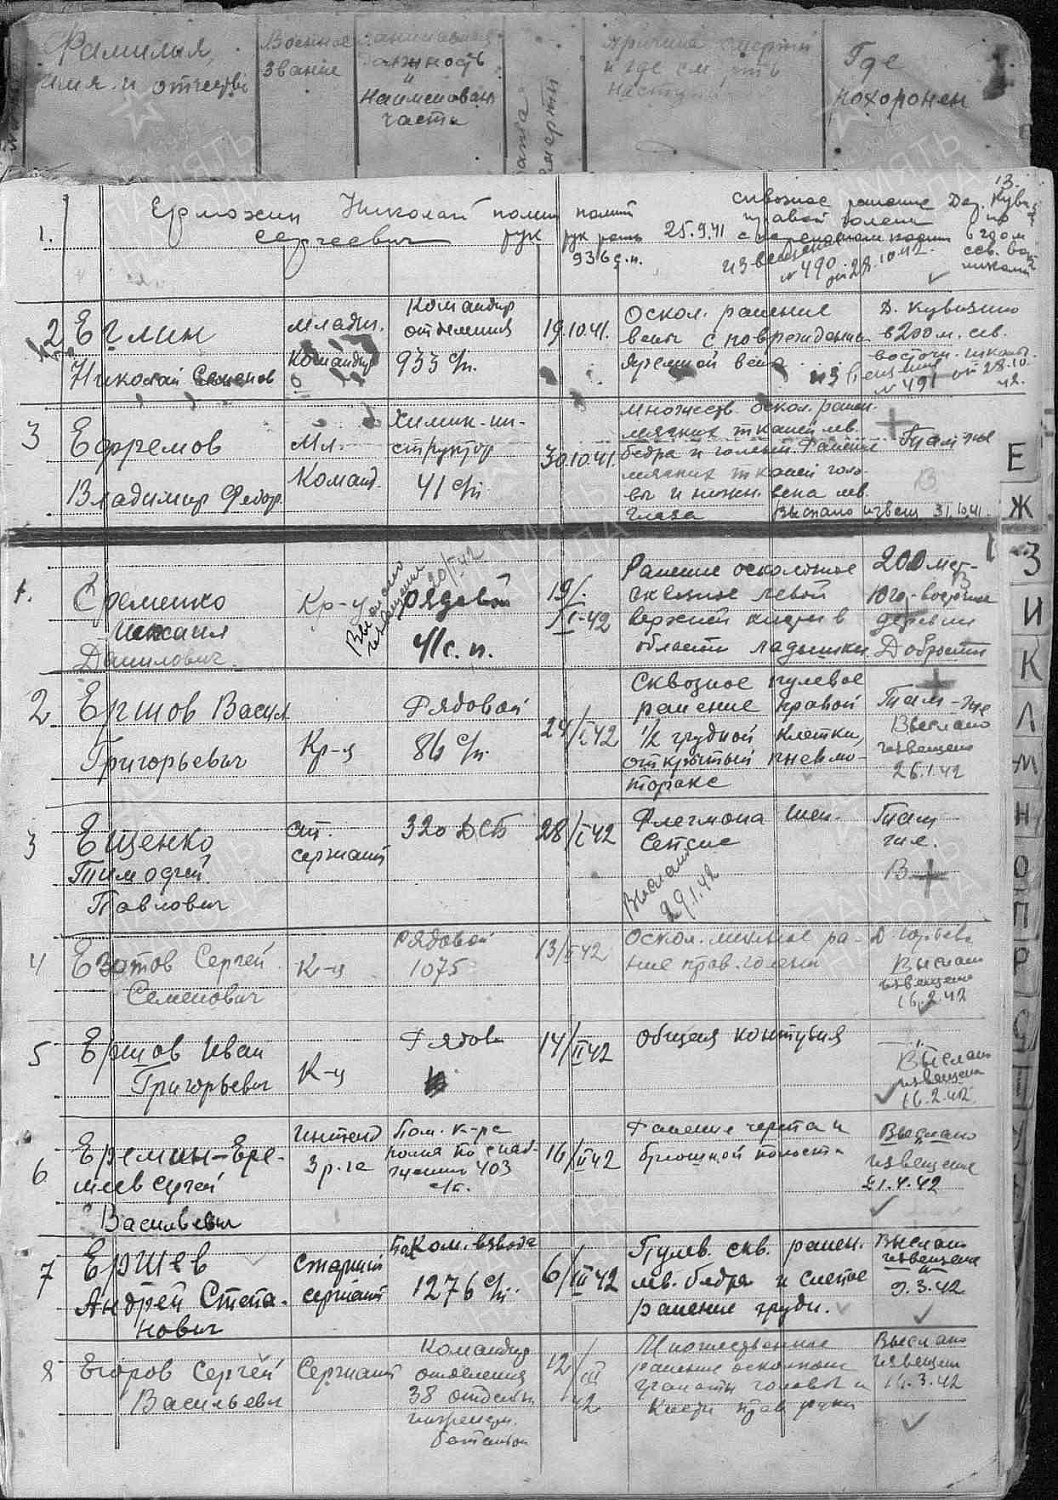 Фамилия, имя и отчество
Военное звание
должность и Наименован. части
Причина смерти и где смерть наступила
Где похоронен
13.
1. Ермохин Николай Сергеевич
полит рук
полит рук роты 936 с.п.
25.9.41
сквозное ранение правой голени
извещение № 490 от 28.10.42.
Дер. Кувш
2 Еглин Николай Семенов
младш. командир
Командир отделения 933 с/п.
19.10.41.
Оскол. ранение вены с повреждением яремной вены
извещение № 491 от 28.10.42.
Д. Кувшино в 200 м. сев. восточн. школы
3 Ефремов Владимир Федор.
Мл. Команд.
Химик-инструктор 41 с/п
30.10.41.
множеств. оскол. ранен. мягких тканей лев. бедра и голени. Ранение мягких тканей головы и нижн. века лев. глаза
Там же
В
Выслано извещ. 31.10.41.
1. Еременко Михаил Данилович.
Кр-ц
Выслано извещение 20/I-42
Рядовой 41 с.п.
19/I-42
Ранение осколочное сквозное левой
области ладышки
200 мет. Юго-восточне деревни
2 Ершов Васил Григорьевич
Кр-ц
Рядовой 86 с/п.
24/I 42
Сквозное пулевое ранение правой 1/2 грудной клетки, открытый пневмоторакс
Там-же
Выслано извещение 26.1.42
3 Ещенко Тимофей Павлович
ст. сержант
320 ДСБ
28/I 42
Флегмона шеи. Сепсис
Выслано 29.1.42
Там же.
В
4 Езотов Сергей Семенович
К-ц
Рядовой 1075
13/II 42
Оскол. ранение прав. голени
Выслано извещение 16.2.42
5 Ершов Иван Григорьевич
К-ц
Рядово
14/II 42
Общая контузия
Выслано извещение 16.2.42
6 Еремин-Еремеев Сергей Васильевич
Интенд 3 р-га
Пом. к-ра полка по снабжению 403 с/п.
16/II 42
Ранение черепа и брюшной полости
Выслано извещение 21.4.42
7 Ершев Андрей Степанович
Старший сержант
ПомКом. взвода 1276 с/п.
6/III 42
Пулев. скв. ранен. лев. бедра и слепое ранение груди.
Выслано извещение 9.3.42
8 Егоров Сергей Васильевич
Сержант
Командир отделения 38 отдельн
батальон
12/III 42
Множественное ранение осколками гранаты головы и кисти прав. руки
Выслано извещен 16.3.42
Е
Ж
З
И
К
Л
М
Н
О
П
Р
С
ПАМЯТЬ НАРОДА